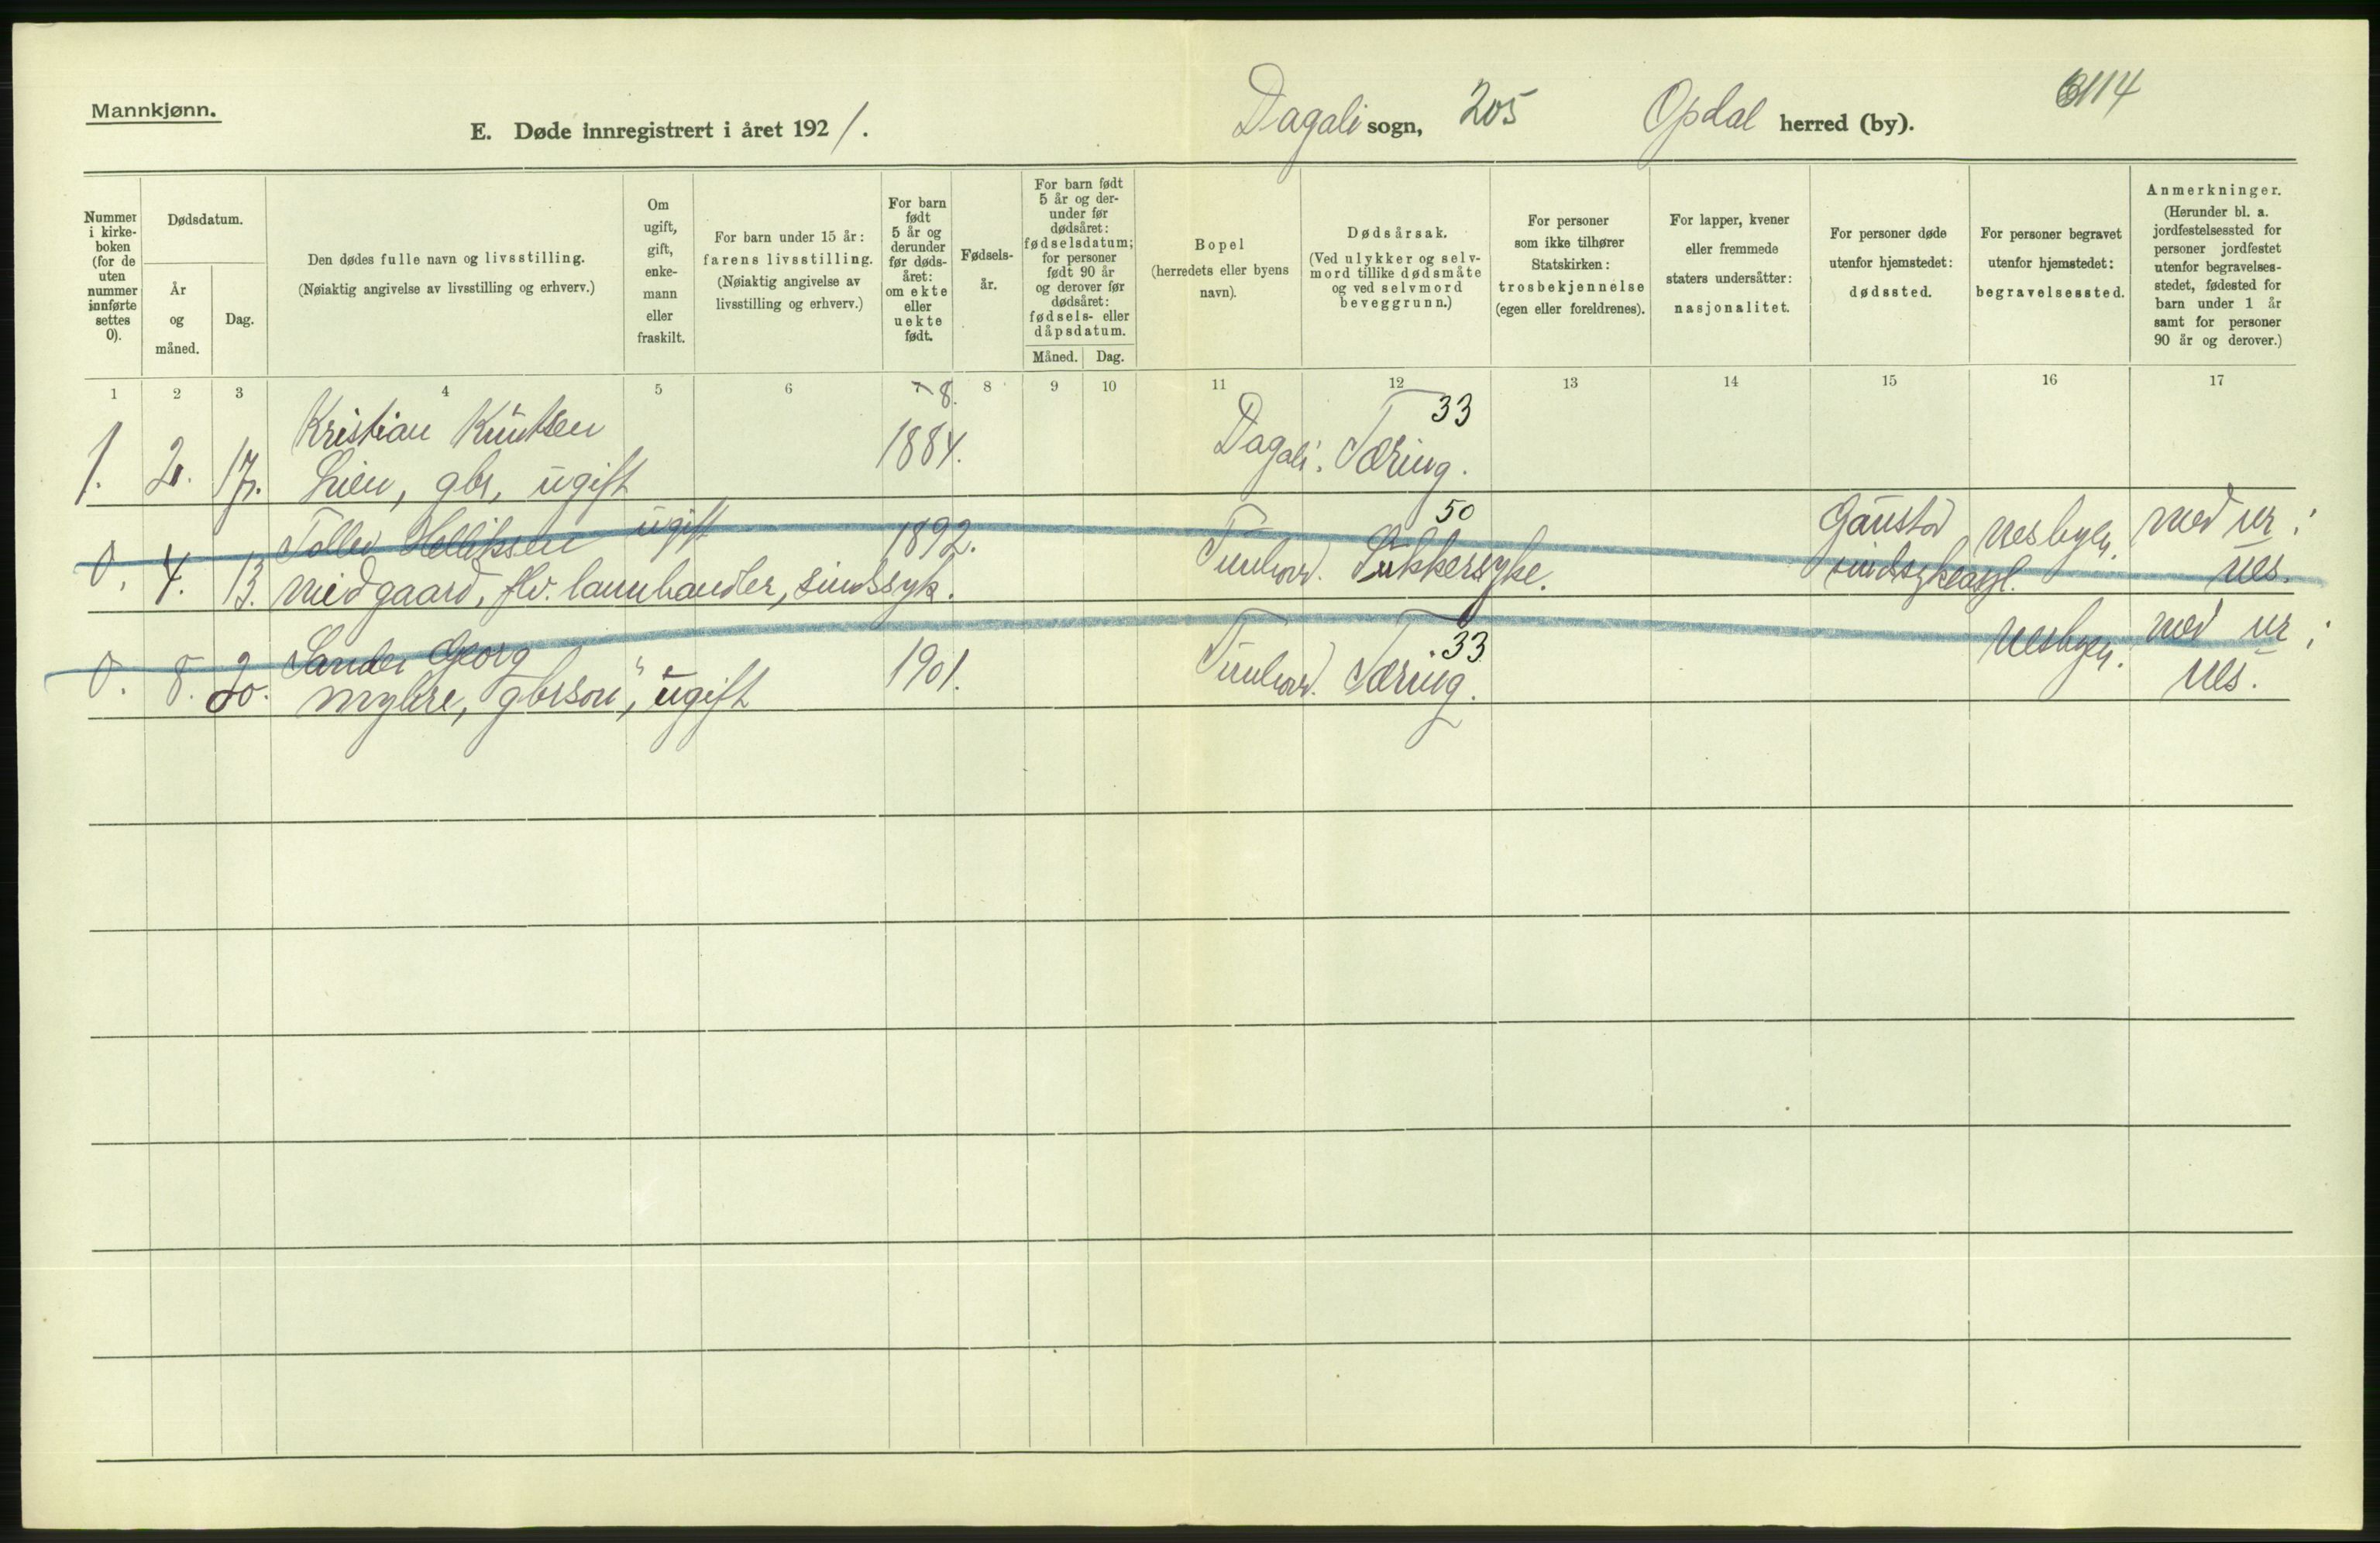 Mannkjønn.
E. Døde innregistrert i året 1921.
Dagali sogn, 205 Opdal herred (by).
114
Nummer i kirkeboken (for de uten nummer innførte settes 0).
Dødsdatum.
År og måned.
Dag.
Den dødes fulle navn og livsstilling.
(Nøiaktig angivelse av livsstilling og erhverv.)
Om ugift, gift, enkemann eller fraskilt.
For barn under 15 år: farens livsstilling.
(Nøiaktig angivelse av livsstilling og erhverv.)
For barn født 5 år og derunder før dødsåret: om ekte eller uekte født.
Fødselsår.
For barn født 5 år og derunder før dødsåret: fødselsdatum; for personer født 90 år og derover før dødsåret: fødsels- eller dåpsdatum.
Måned. Dag.
Bopel
(herredets eller byens navn).
Dødsårsak.
(Ved ulykker og selvmord tillike dødsmåte og ved selvmord beveggrunn.)
For personer som ikke tilhører Statskirken: trosbekjennelse (egen eller foreldrenes).
For lapper, kvener eller fremmede staters undersåtter: nasjonalitet.
For personer døde utenfor hjemstedet: dødssted.
For personer begravet utenfor hjemstedet: begravelsessted.
Anmerkninger.
(Herunder bl. a. jordfestelsessted for personer jordfestet utenfor begravelsesstedet, fødested for barn under 1 år samt for personer 90 år og derover.)
1 2 3 4 5 6 7 8 9 10 11 12 13 14 15 16 17
8.
33
Kristian Knutsen
1. 2. 17. Lien, gbr, ugift 1884. Dagali. Tæring.
50
Tollev Helliksen ugift 1892. Gaustad Nesbyen. med nr i
0. 4. 13. Midgaard, flv. lannhandler, sindssyk. Tunhovd. Sukkersyke. sindsykeasyl. Nes.
33
Sander Georg med nr i
0. 8. 20. Myhre, gbrsøn, ugift 1901. Tunhovd. Tæring. Nesbyen. Nes.